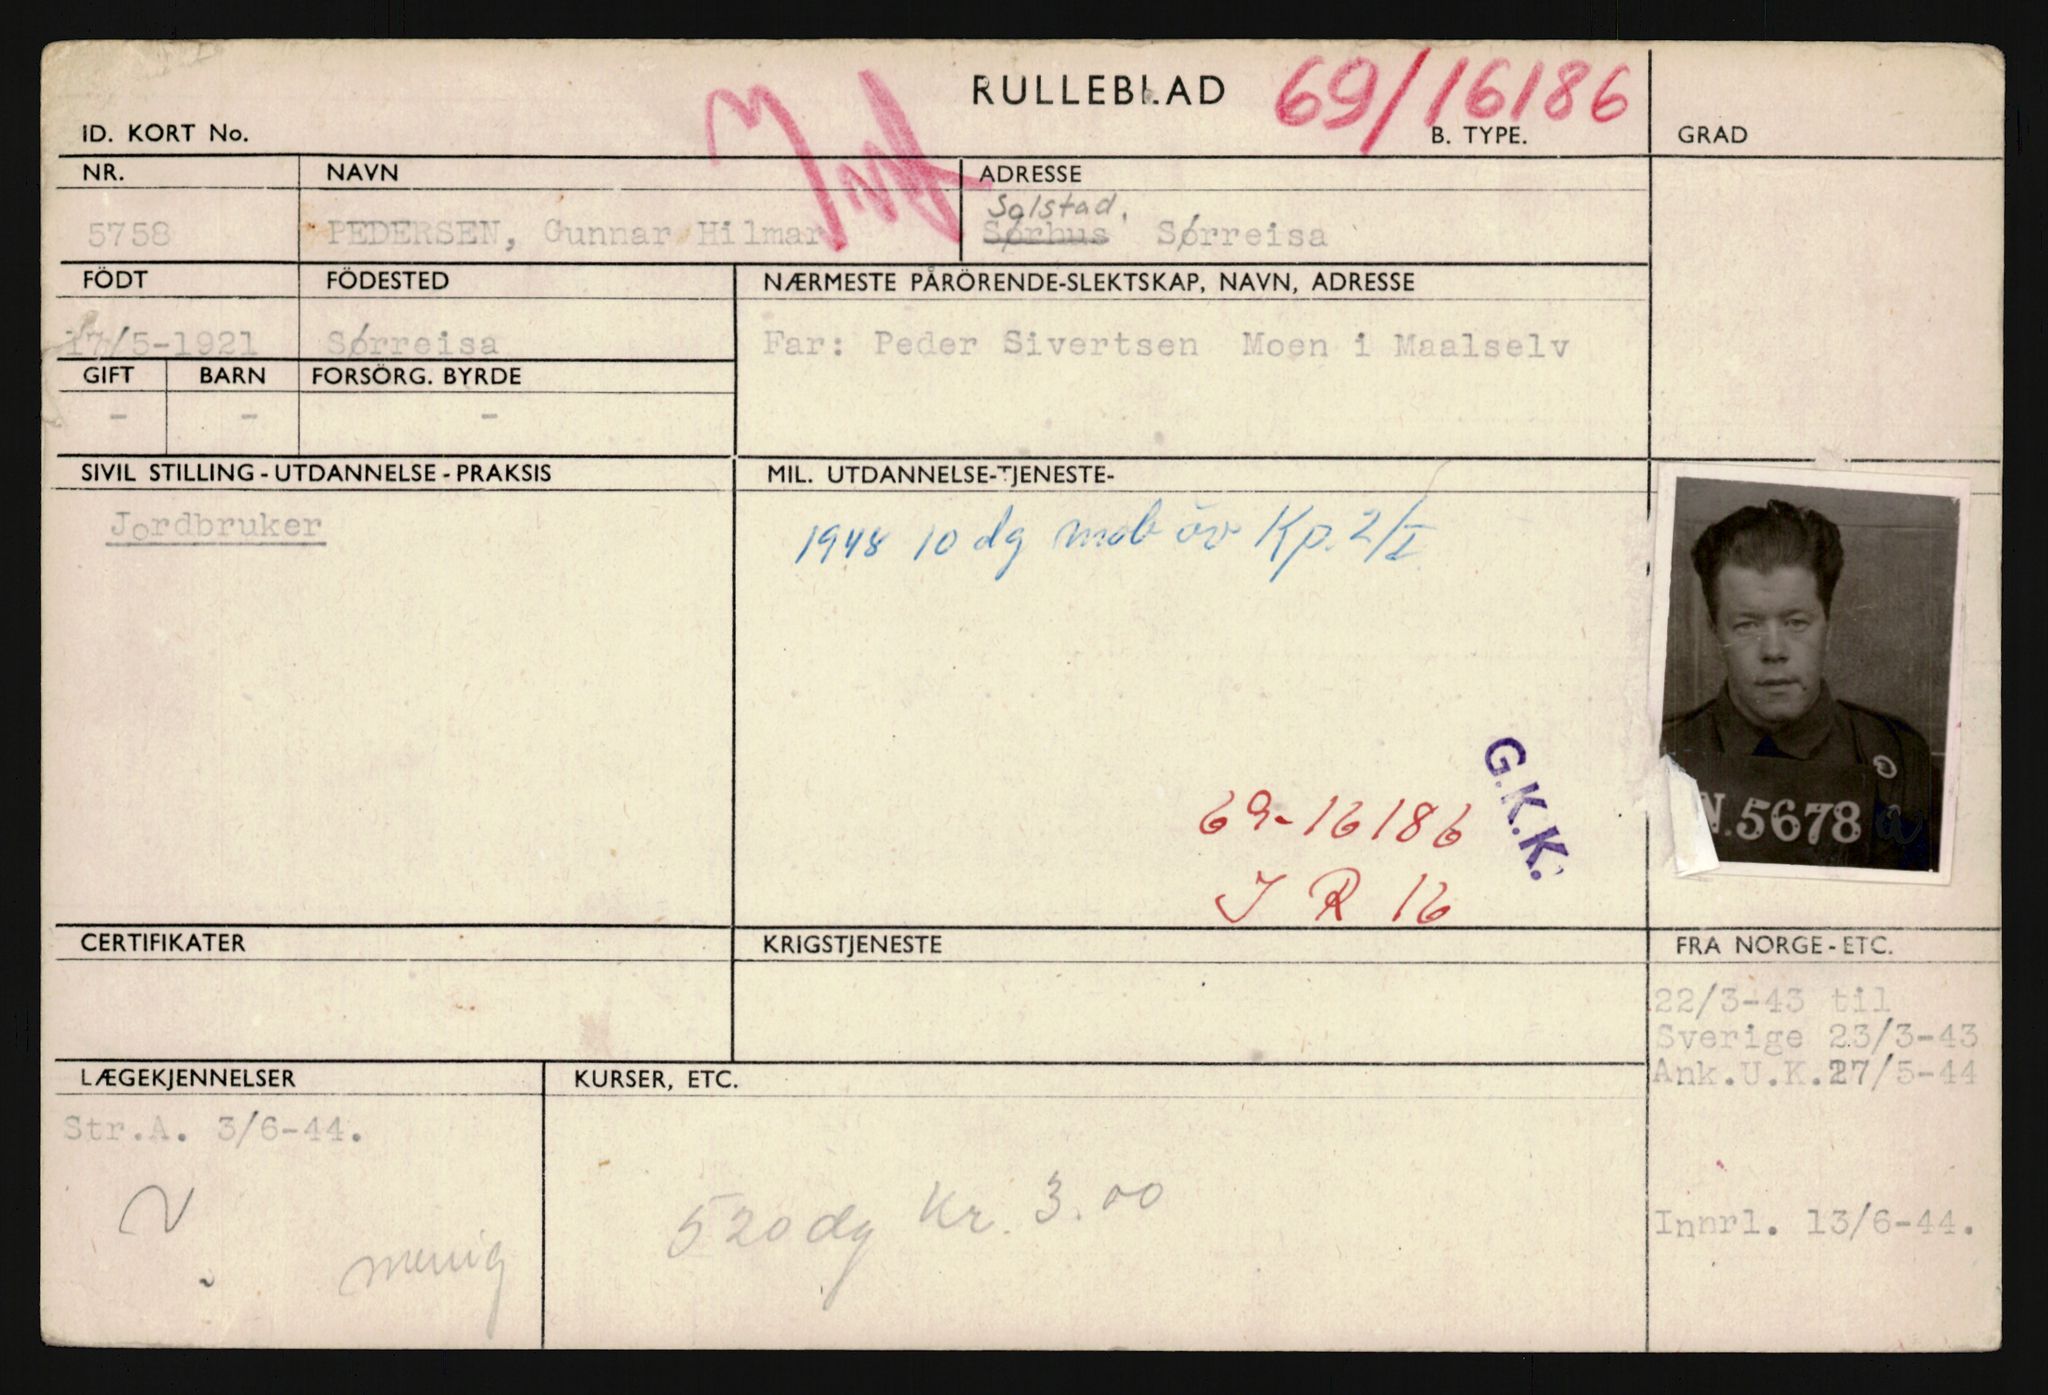 RULLEBLAD 69/16186
ID. KORT No. B. TYPE. GRAD
Inf
NR. NAVN ADRESSE
Solstad,
5758 PEDERSEN, Gunnar Hilmar Sørhus Sørreisa
FÖDT FÖDESTED NÆRMESTE PÅRÖRENDE-SLEKTSKAP, NAVN, ADRESSE
17/5-1921 Sørreisa Far: Peder Sivertsen Moen i Maalselv
GIFT BARN FORSÖRG. BYRDE
- - -
SIVIL STILLING - UTDANNELSE - PRAKSIS MIL. UTDANNELSE-TJENESTE-
Jordbruker 1948 10 dg mob öv Kp. 2/I
G.K.K.
N.5678 a
69-16186
I R 16
CERTIFIKATER KRIGSTJENESTE FRA NORGE - ETC.
22/3-43 til
Sverige 23/3-43
Ank.U.K.27/5-44
LÆGEKJENNELSER KURSER, ETC.
Str.A. 3/6-44.
520 dg Kr. 3.00
Innrl. 13/6-44.
menig